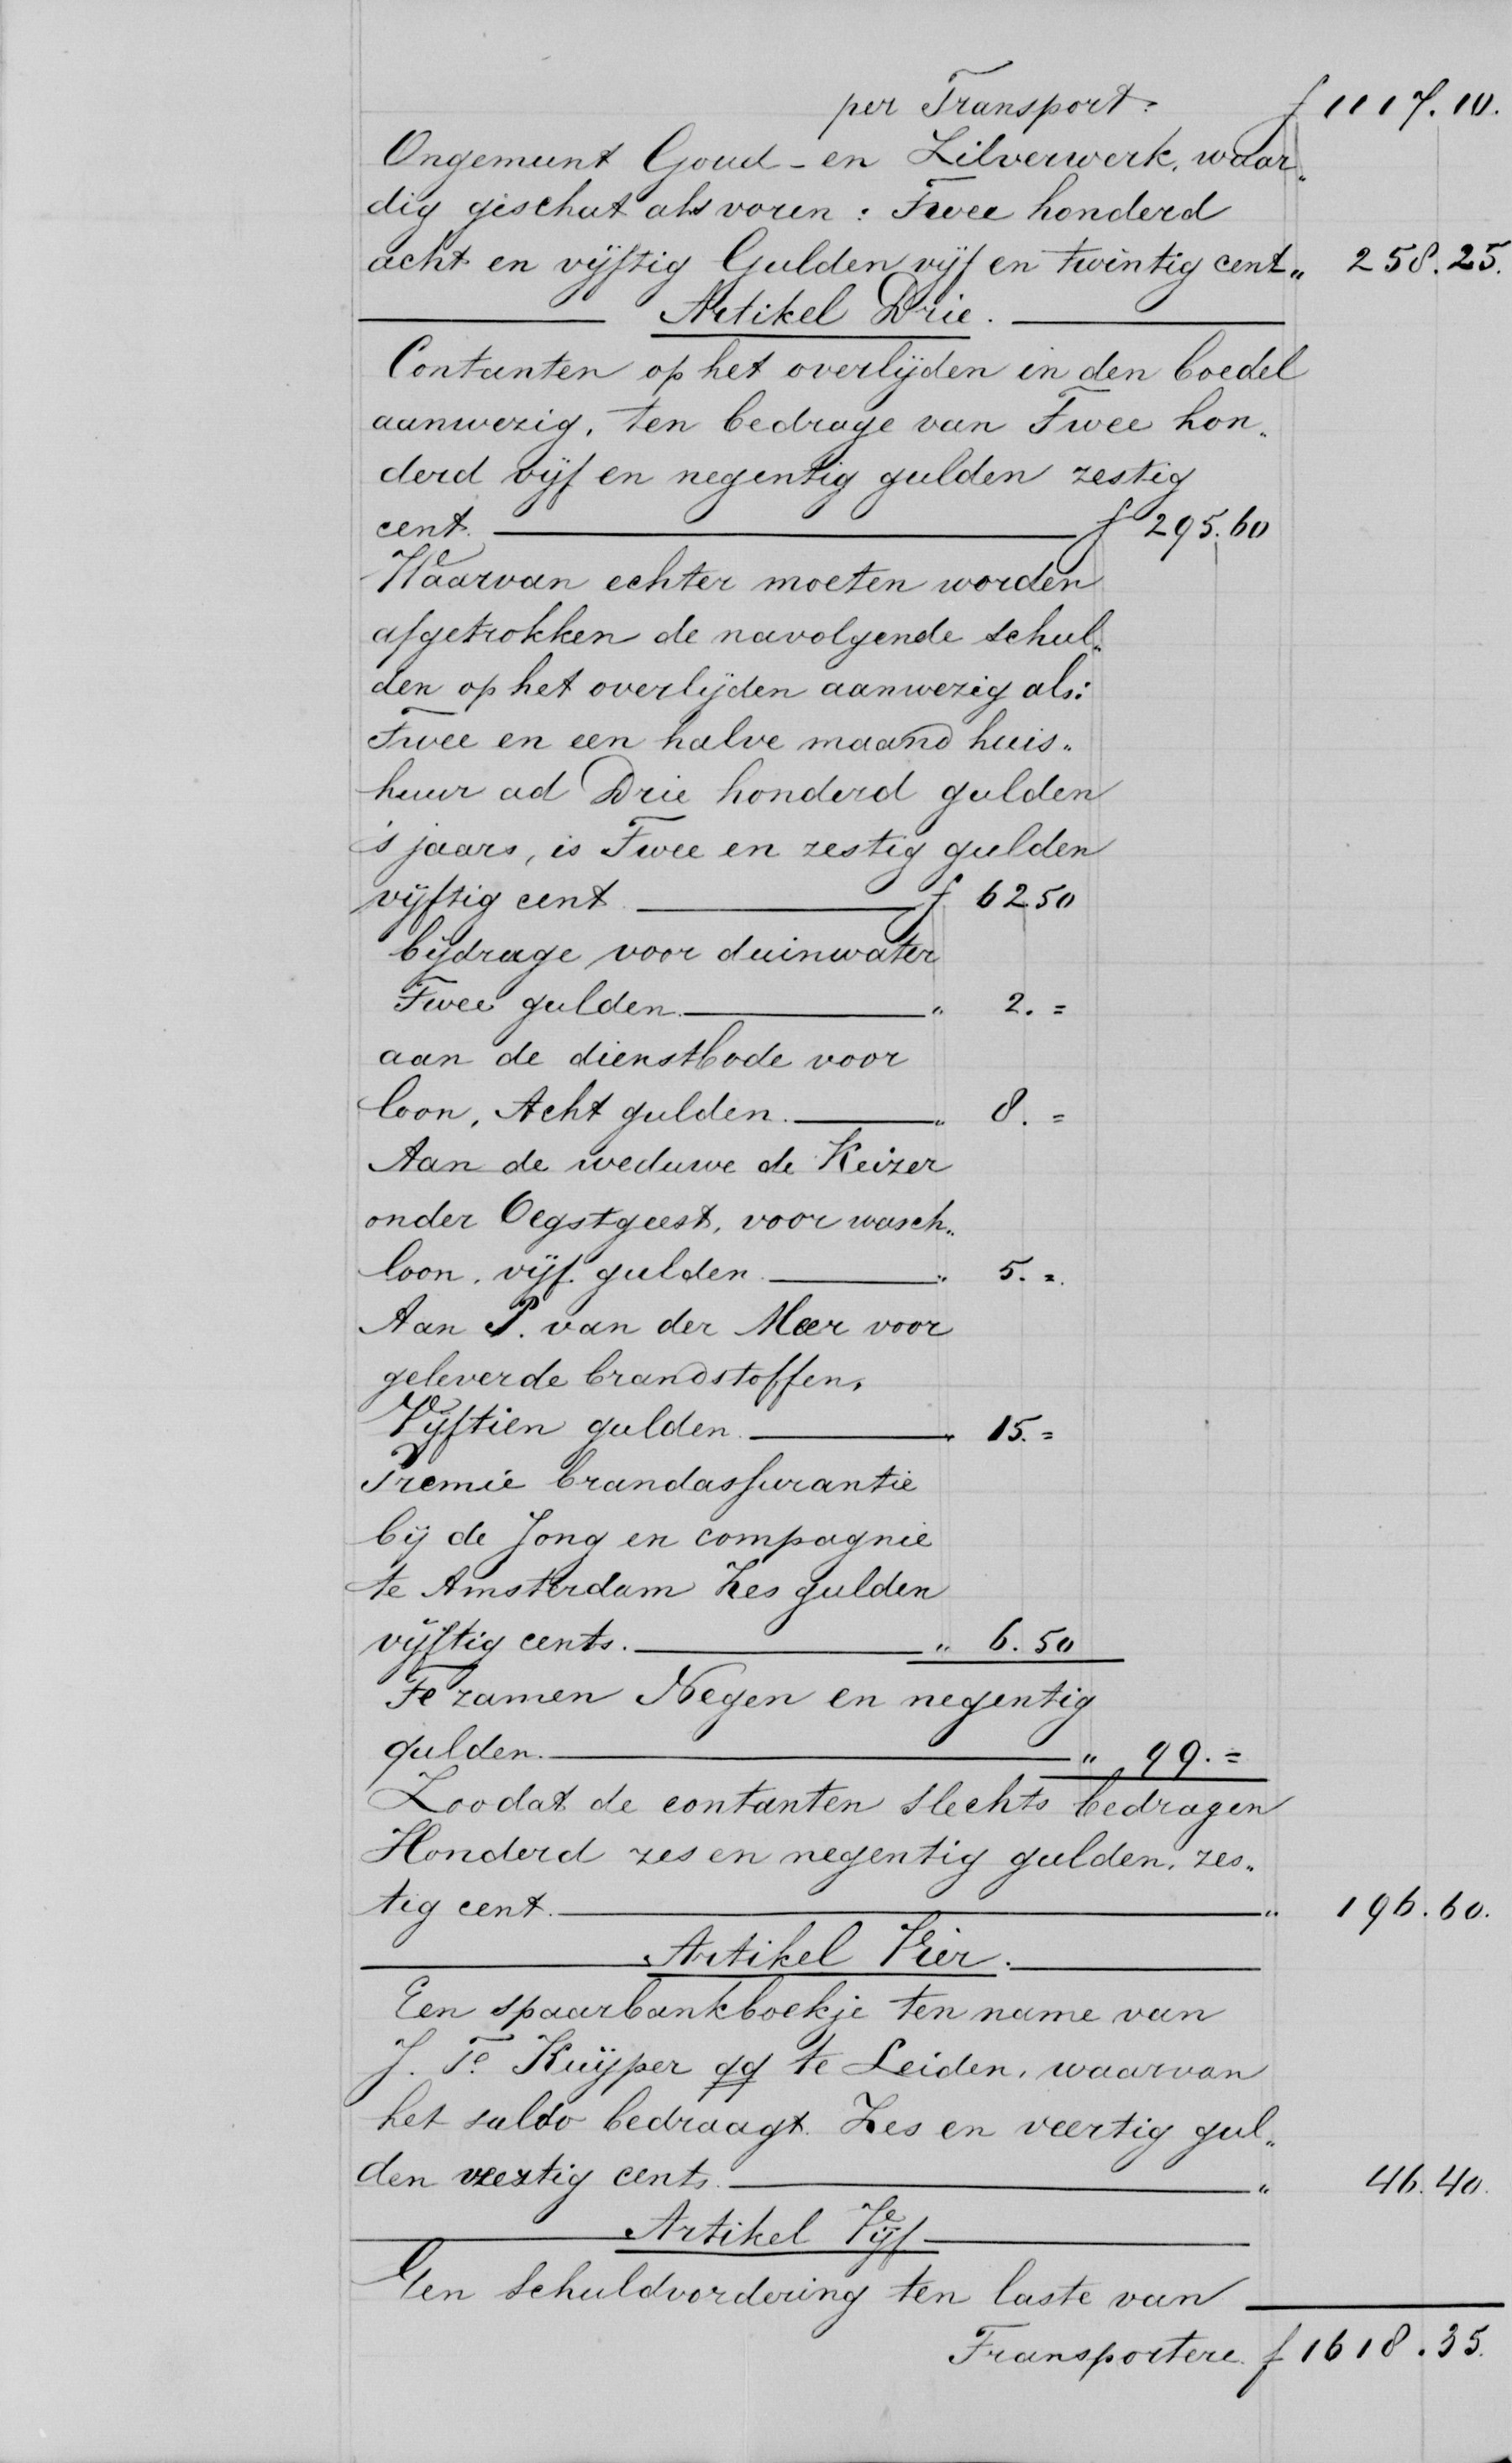 per Transport. f 1117.10.
Ongemunt Goud- en Zilverwerk, waar„
dig geschat als voren: Twee honderd
acht en vijftig Gulden vijf en twintig cent „ 258.25.
Artikel Drie.
Contanten op het overlijden in den boedel
aanwezig, ten bedrage van Twee hon„
derd vijf en negentig gulden zestig
cent. f 295.60
Waarvan echter moeten worden
afgetrokken de navolgende schul„
den op het overlijden aanwezig als:
Twee en een halve maand huis„
huur ad Drie honderd gulden
's jaars, is Twee en zestig gulden
vijftig cent f 62 50
bijdrage voor duinwater
Twee gulden. „ 2. =
aan de dienstbode voor
loon, Acht gulden. „ 8. =
Aan de weduwe de Keizer
onder Oegstgeest, voor wasch„
loon, vijf gulden „ 5. =.
Aan P. van der Meer voor
geleverde brandstoffen,
Vijftien gulden „ 15. =
Premie brandassurantie
bij de Jong en compagnie
te Amsterdam Zes gulden
vijftig cents. „ 6.50
Te zamen Negen en negentig
gulden. „ 99. =
Zoodat de contanten slechts bedragen
Honderd zes en negentig gulden, zes„
tig cent. „ 196.60.
Artikel Vier.
Een spaarbankboekje ten name van
J. Te Kuijper qq te Leiden, waarvan
het saldo bedraagt Zes en veertig gul„
den veertig cents. „ 46.40.
Artikel Vijf
Een schuldvordering ten laste van
Transportere. f 1618.35.